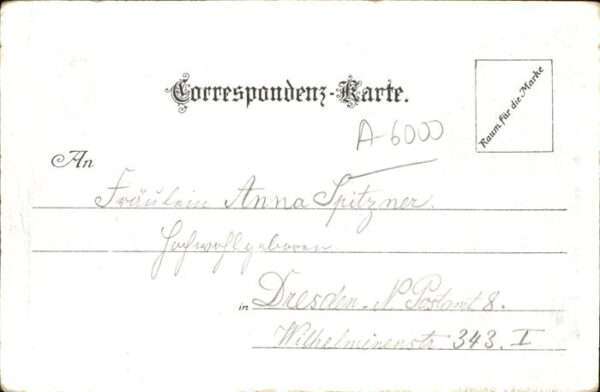 Correspondenz-Karte.
Raum für die Marke
A-6000
An
Fräulein Anna Spitzner.
Hochwohlgeboren
in Dresden. N Postamt 8.
Wilhelminenstr 343. I